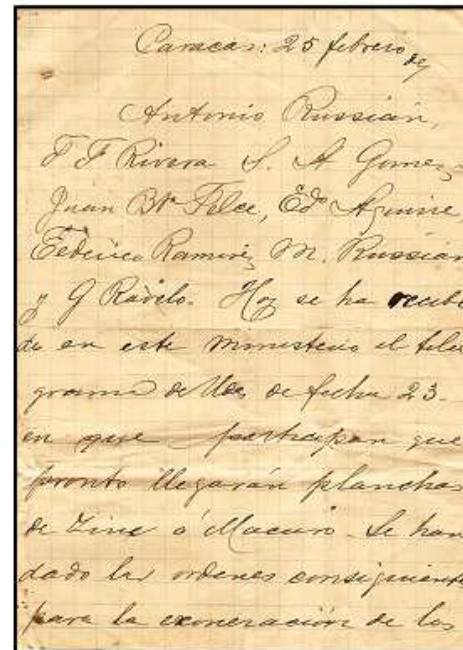 Caracas: 25 febrero de
Antonio Russián,
F F Rivera S. A Gomez
Juan Bta Felce, Edo Aguirre,
Federico Ramirez, M. Russián
y G Ravelo. Hoy se ha recibi
do en este ministerio el tele
grama de Uds de fecha 23
en que participan que
pronto llegarán planchas
de Zinc á Macuro. Se han
dado las ordenes consiguiente
para la exoneración de los